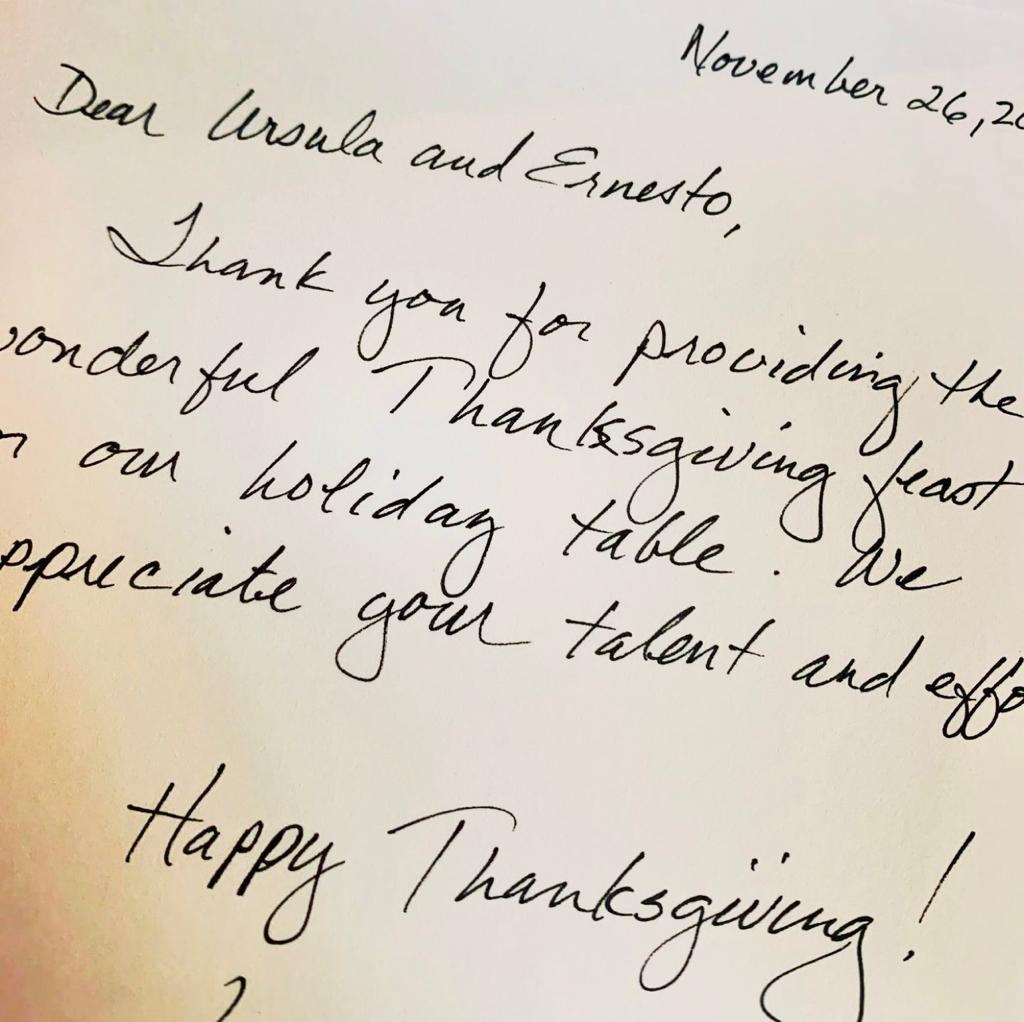 November 26, 20
Dear Ursula and Ernesto,
Thank you for providing the
wonderful Thanksgiving feast
our holiday table. We
appreciate your talent and effo
Happy Thanksgiving!